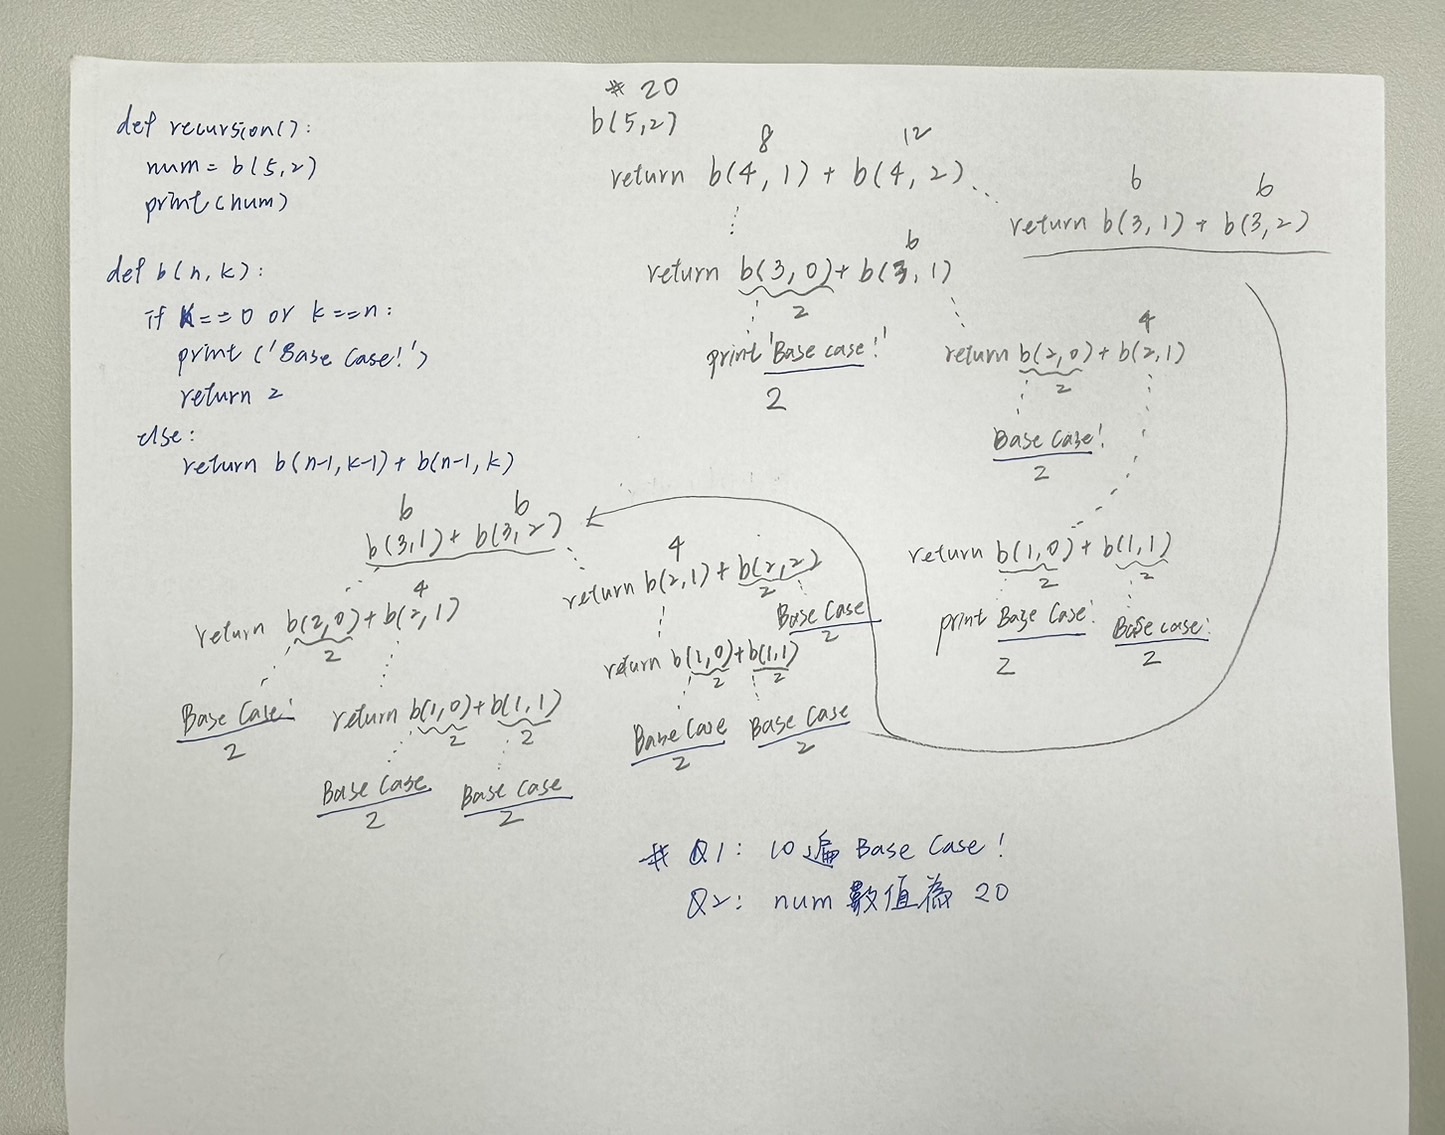 def recursion():
num = b(5,2)
print(num)
def b(n, k):
if k == 0 or k == n:
print ('Base Case!')
return 2
else:
return b(n-1, k-1) + b(n-1, k)
# 20
b(5,2)
8 12
return b(4, 1) + b(4, 2)
6 6
return b(3, 1) + b(3, 2)
6
return b(3, 0) + b(3, 1)
2
print 'Base case!'
2
4
return b(2,0) + b(2,1)
2
Base Case!
2
return b(1,0) + b(1,1)
2 2
print Base Case! Base case!
2 2
6 6
b(3,1) + b(3,2)
4
return b(2,0) + b(2,1)
2
Base Case!
2
return b(1,0) + b(1,1)
2 2
Base Case Base Case
2 2
4
return b(2,1) + b(2,2)
2
Base Case
2
return b(1,0) + b(1,1)
2 2
Base Case Base Case
2 2
# Q1: 10遍 Base Case!
Q2: num 數值為 20